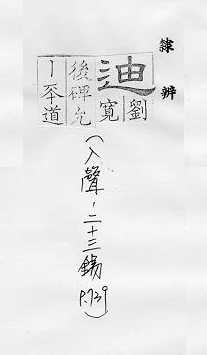 隸辨
迪
劉
寬
後碑允
丨 道
(入聲-二十三錫 P.739)